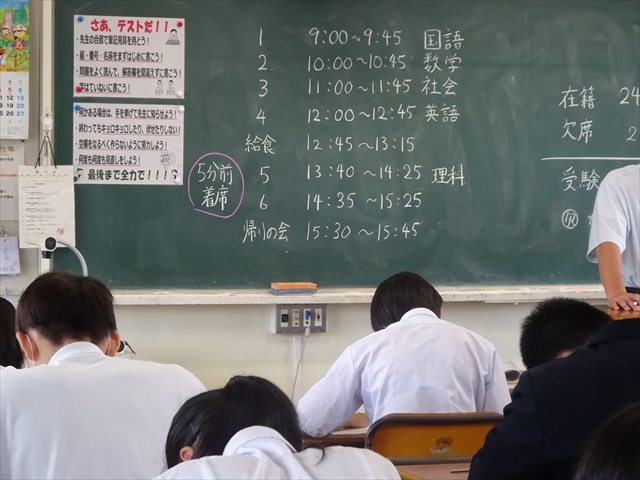 さあ、テストだ！！
・先生の合図で筆記用具を持とう！
・組・番号・名前をまずはじめに書こう！
・問題をよく読んで、解答欄を間違えずに書こう！
・字はていねいに書こう！
・何かある場合は、手を挙げて先生に知らせよう！
・終わってもキョロキョロしたり、伏せたりしない！
・空欄をなるべく作らないように努力しよう！
・何度も何度も見直しをしよう！
最後まで全力で！！！
1 9:00～9:45 国語
2. 10:00～10:45 数学
3 11:00～11:45 社会
4 12:00～12:45 英語
給食 12:45～13:15
5分前
着席
5 13:40～14:25 理科
6 14:35～15:25
帰りの会 15:30～15:45
在籍 24
欠席 2
受験